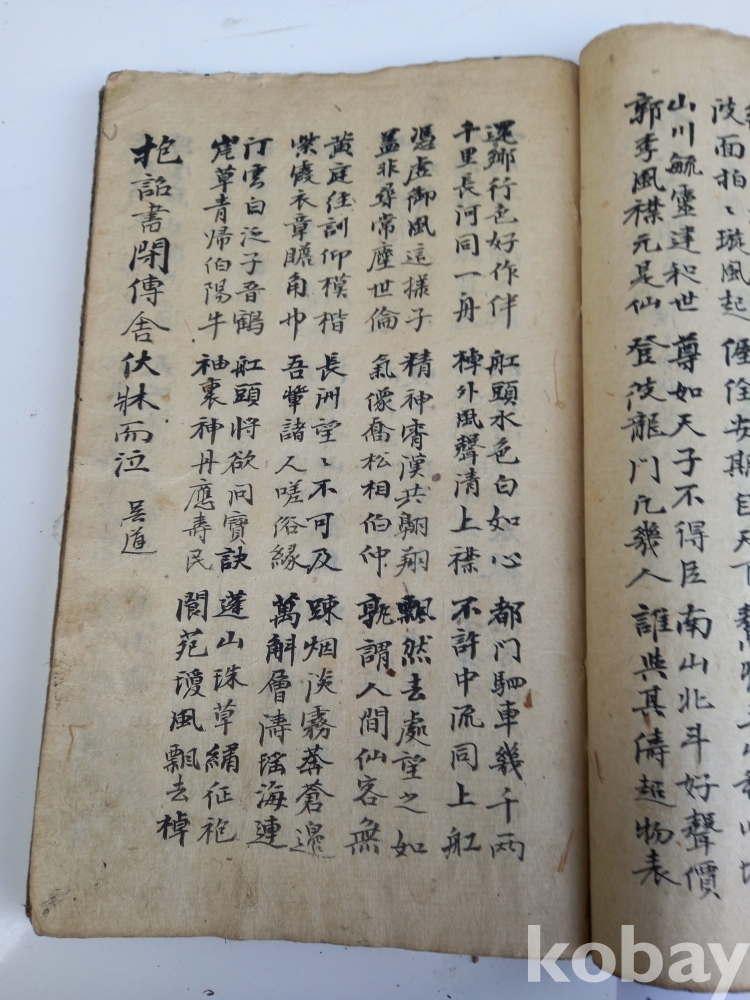 陂面拍〻璇風起 偓佺安期臣天下
山川毓靈建和世 尊如天子不得臣 南山北斗好聲價
郭季風襟元是仙 登彼龍門凡幾人 誰與其濤超物表
還鄉行色好作伴 舡頭水色白如心 都門駟車幾千兩
千里長河同一舟 棹外風聲清上襟 不許中流同上舡
憑虛御風這樣子 精神霄漢共翶翔 飄然去處望之如
盖非尋常塵世倫 氣像喬松相伯仲 孰謂人間仙客無
黃庭往訓仰模楷 長洲望〻不可及 踈烟淡霧莾蒼邊
紫霞衣章瞻角巾 吾輩諸人嗟俗緣 萬斛層濤瑤海連
汀雲自泛子晉鶴 舡頭將欲問寶訣 蓬山珠草繡征袍
崖草青歸伯陽牛 袖裏神丹應壽民 閬苑瓊風飄去棹
抱詔書閉傳舍伏牀而泣 吴道
kobay